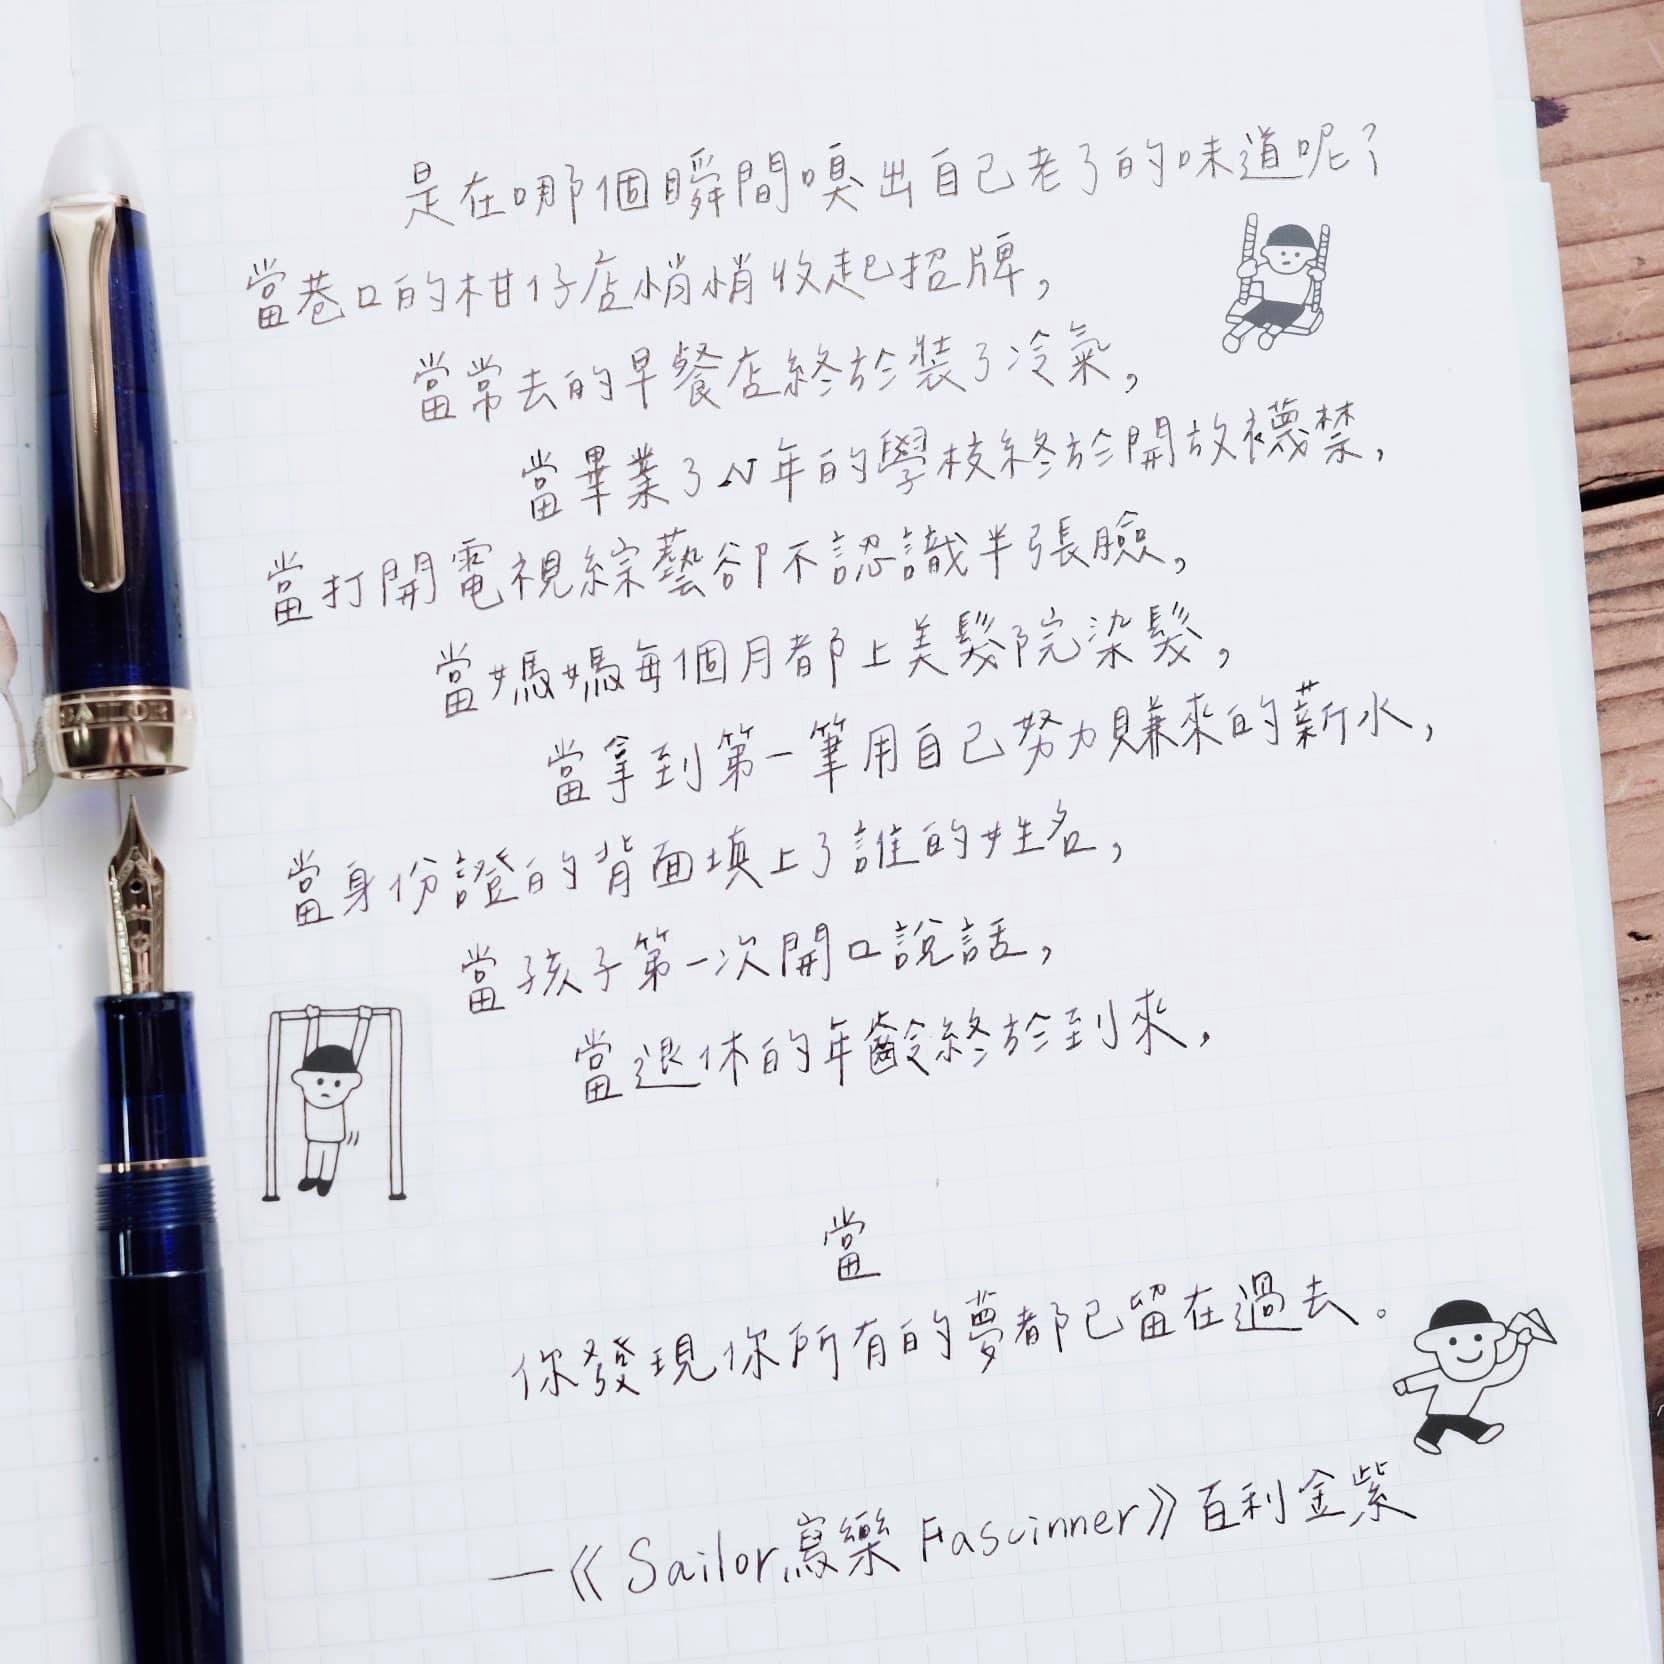 是在哪個瞬間嗅出自己老了的味道呢?
當巷口的柑仔店悄悄收起招牌,
當常去的早餐店終於裝了冷氣,
當畢業了N年的學校終於開放襪禁,
當打開電視綜藝卻不認識半張臉,
當媽媽每個月都上美髮院染髮,
當拿到第一筆用自己努力賺來的薪水,
當身份證的背面填上了誰的姓名,
當孩子第一次開口說話,
當退休的年齡終於到來,
當
你發現你所有的夢都已留在過去。
—《Sailor寫樂 Fascinner》百利金紫
SAILOR